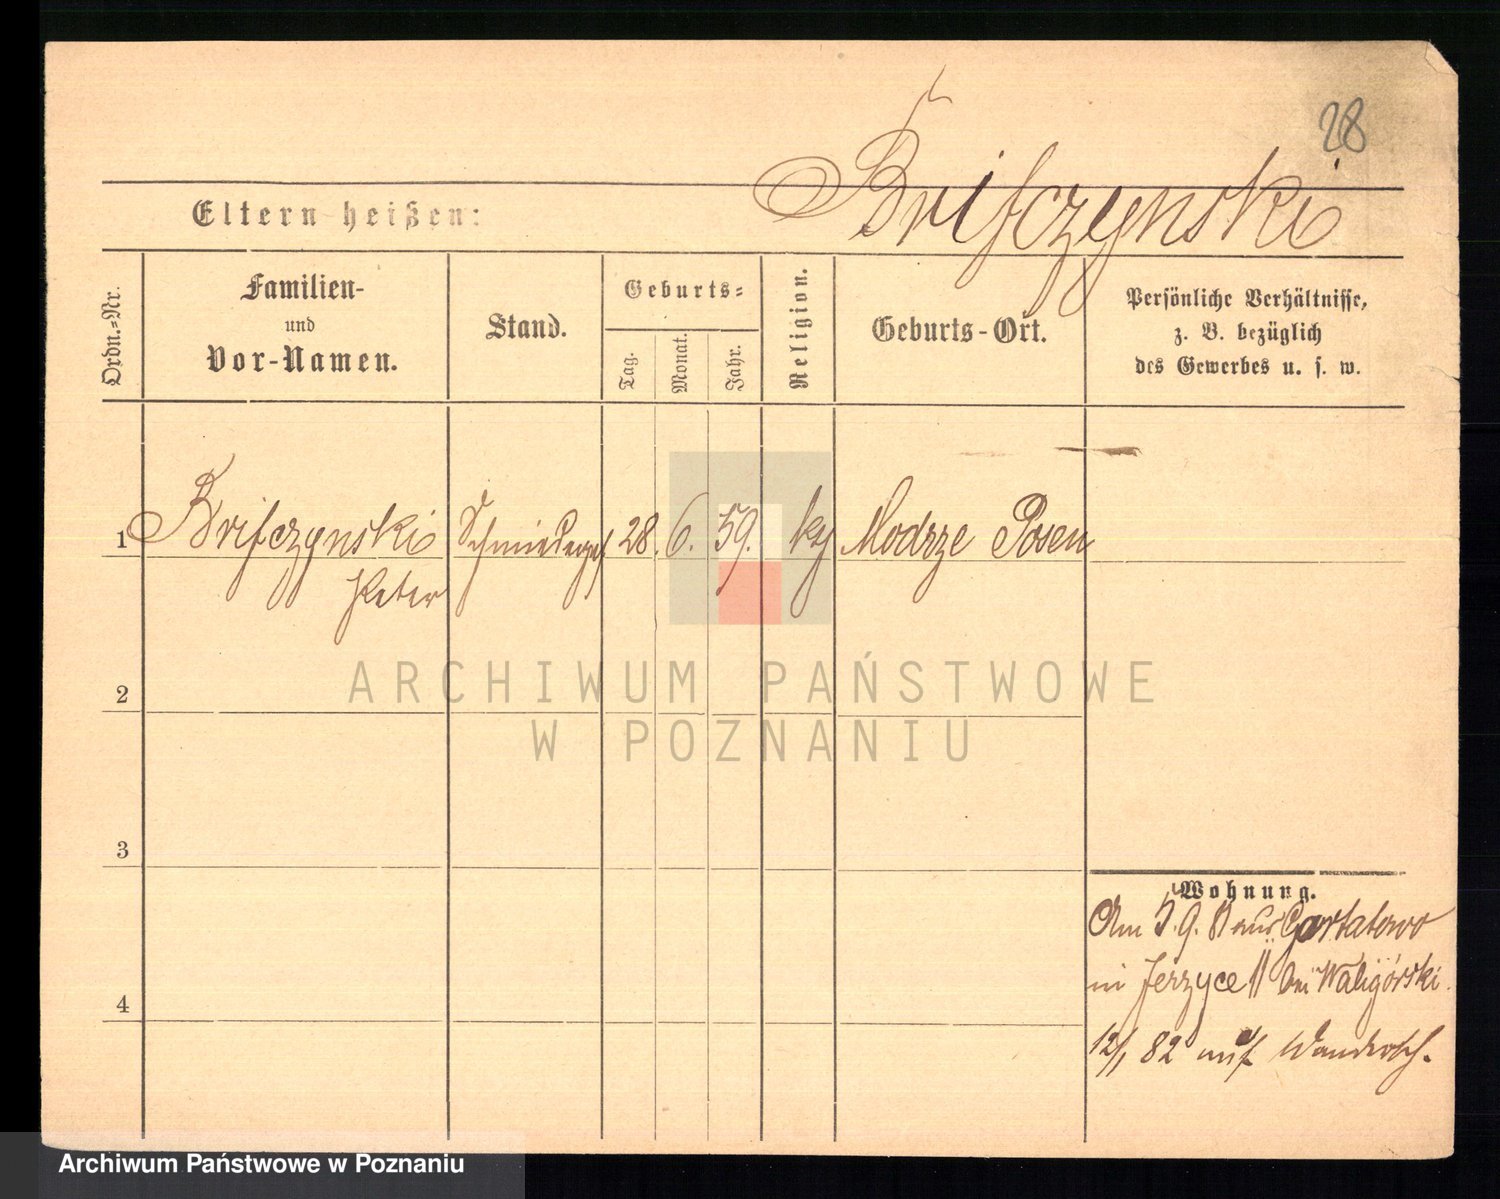 28
Brifczynski
Eltern heißen:
Ordn.-Nr.
Familien-
und
Vor-Namen.
Stand.
Geburts-
Tag.
Monat.
Jahr.
Religion.
Geburts-Ort.
Persönliche Verhältnisse,
z. B. bezüglich
des Gewerbes u. s. w.
1 Brifczynski Schmiedeges 28. 6. 59. Modrze Posen
Peter
ARCHIWUM PAŃSTWOWE
W POZNANIU
2
3
4
Wohnung.
Am 5.9. 81 aus
in Jerzyce 11 bei Waligórski.
12/1 82 auf Wandersch.
Archiwum Państwowe w Poznaniu